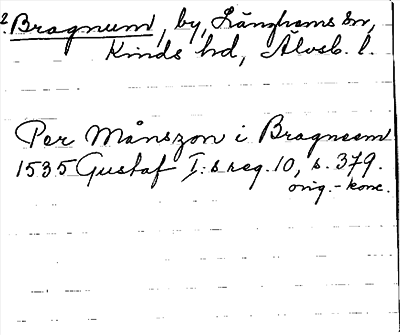 2. Bragnum, by, Länghems sn,
Kinds hd, Älvsb. l.
Per Månszon i Bragneem
1535 Gustaf I:s reg. 10, s. 379.
orig.-konc.